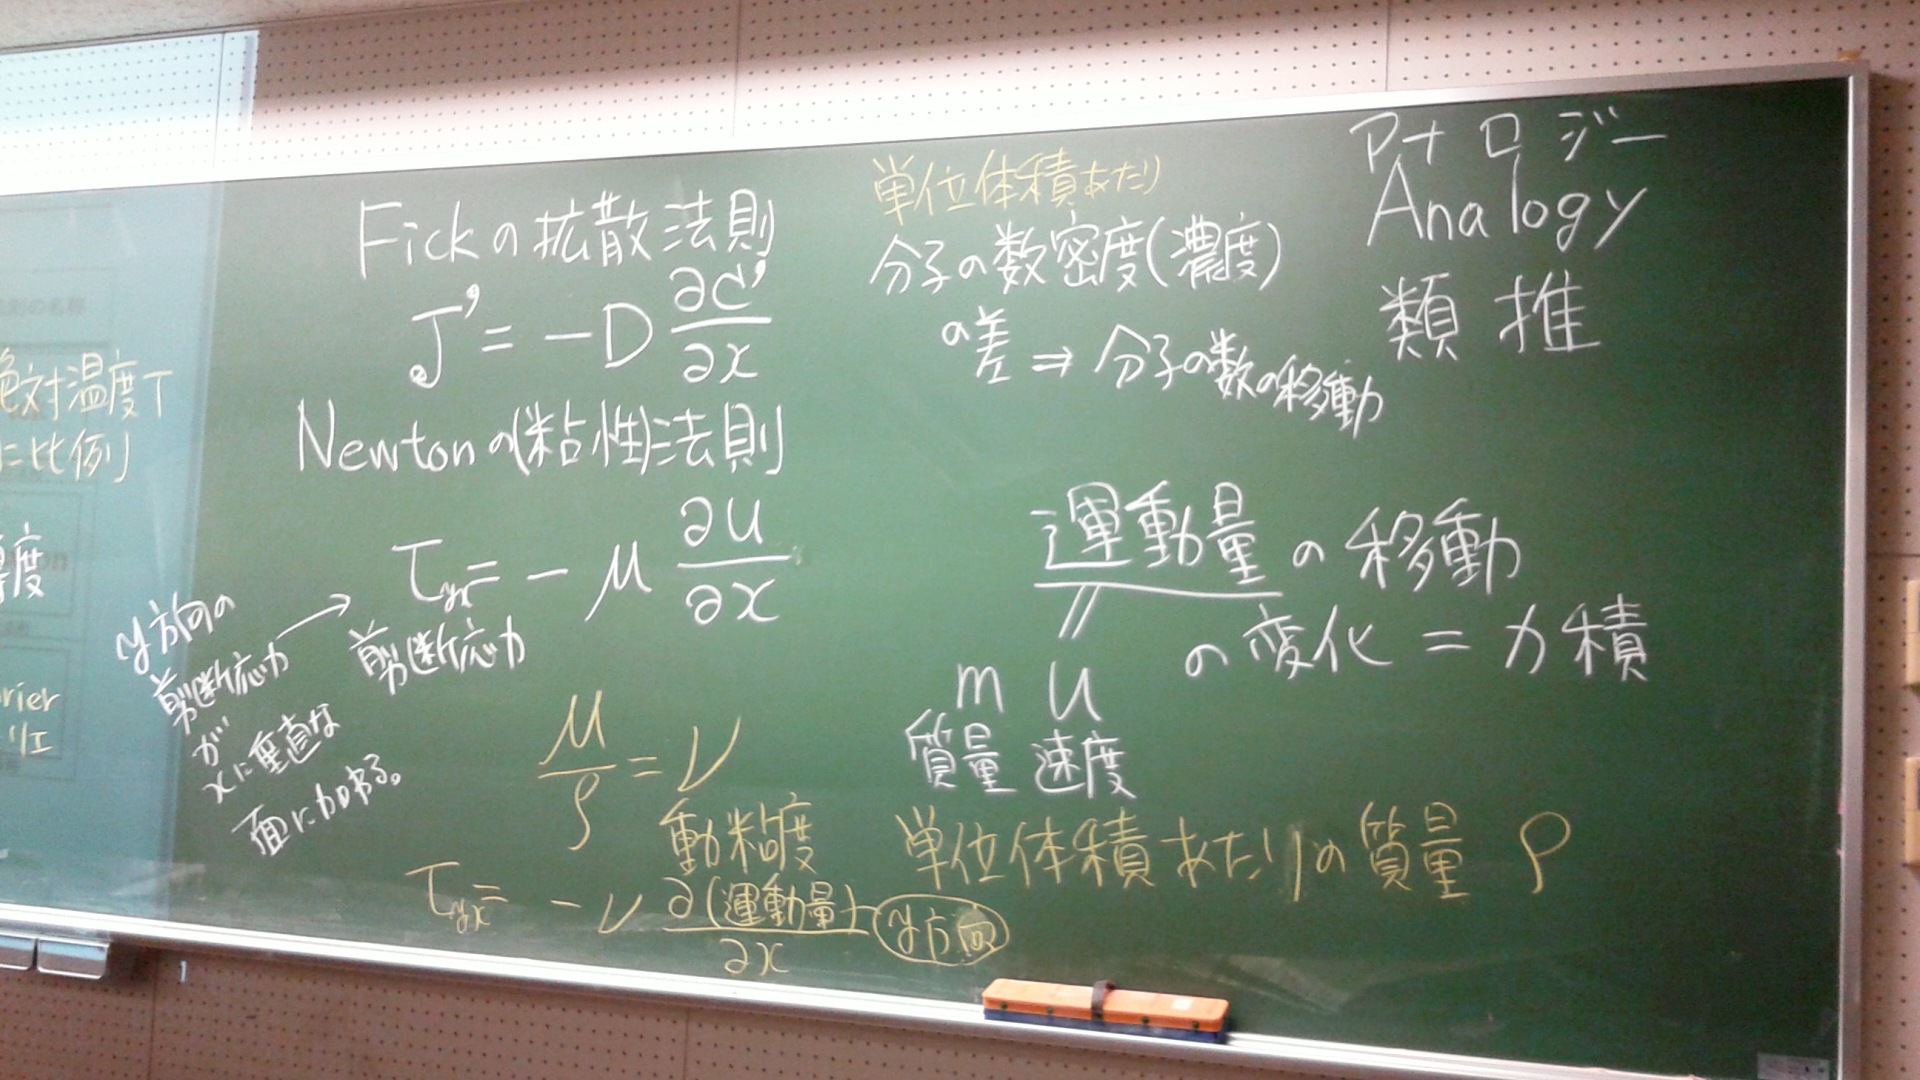 絶対温度T
に比例
度
rier
リエ
Fickの拡散法則
J' = -D ∂C'/∂x
Newtonの(粘性)法則
τyx = -μ ∂u/∂x
剪断応力
y方向の
剪断応力
が
xに垂直な
面に加わる。
μ/ρ = ν
動粘度
τyx = -ν ∂(運動量)/∂x
y方向
単位体積あたり
分子の数密度(濃度)
の差 ⇒ 分子の数の移動
運動量の移動
の変化 = 力積
m u
質量 速度
単位体積あたりの質量 ρ
アナロジー
Analogy
類推